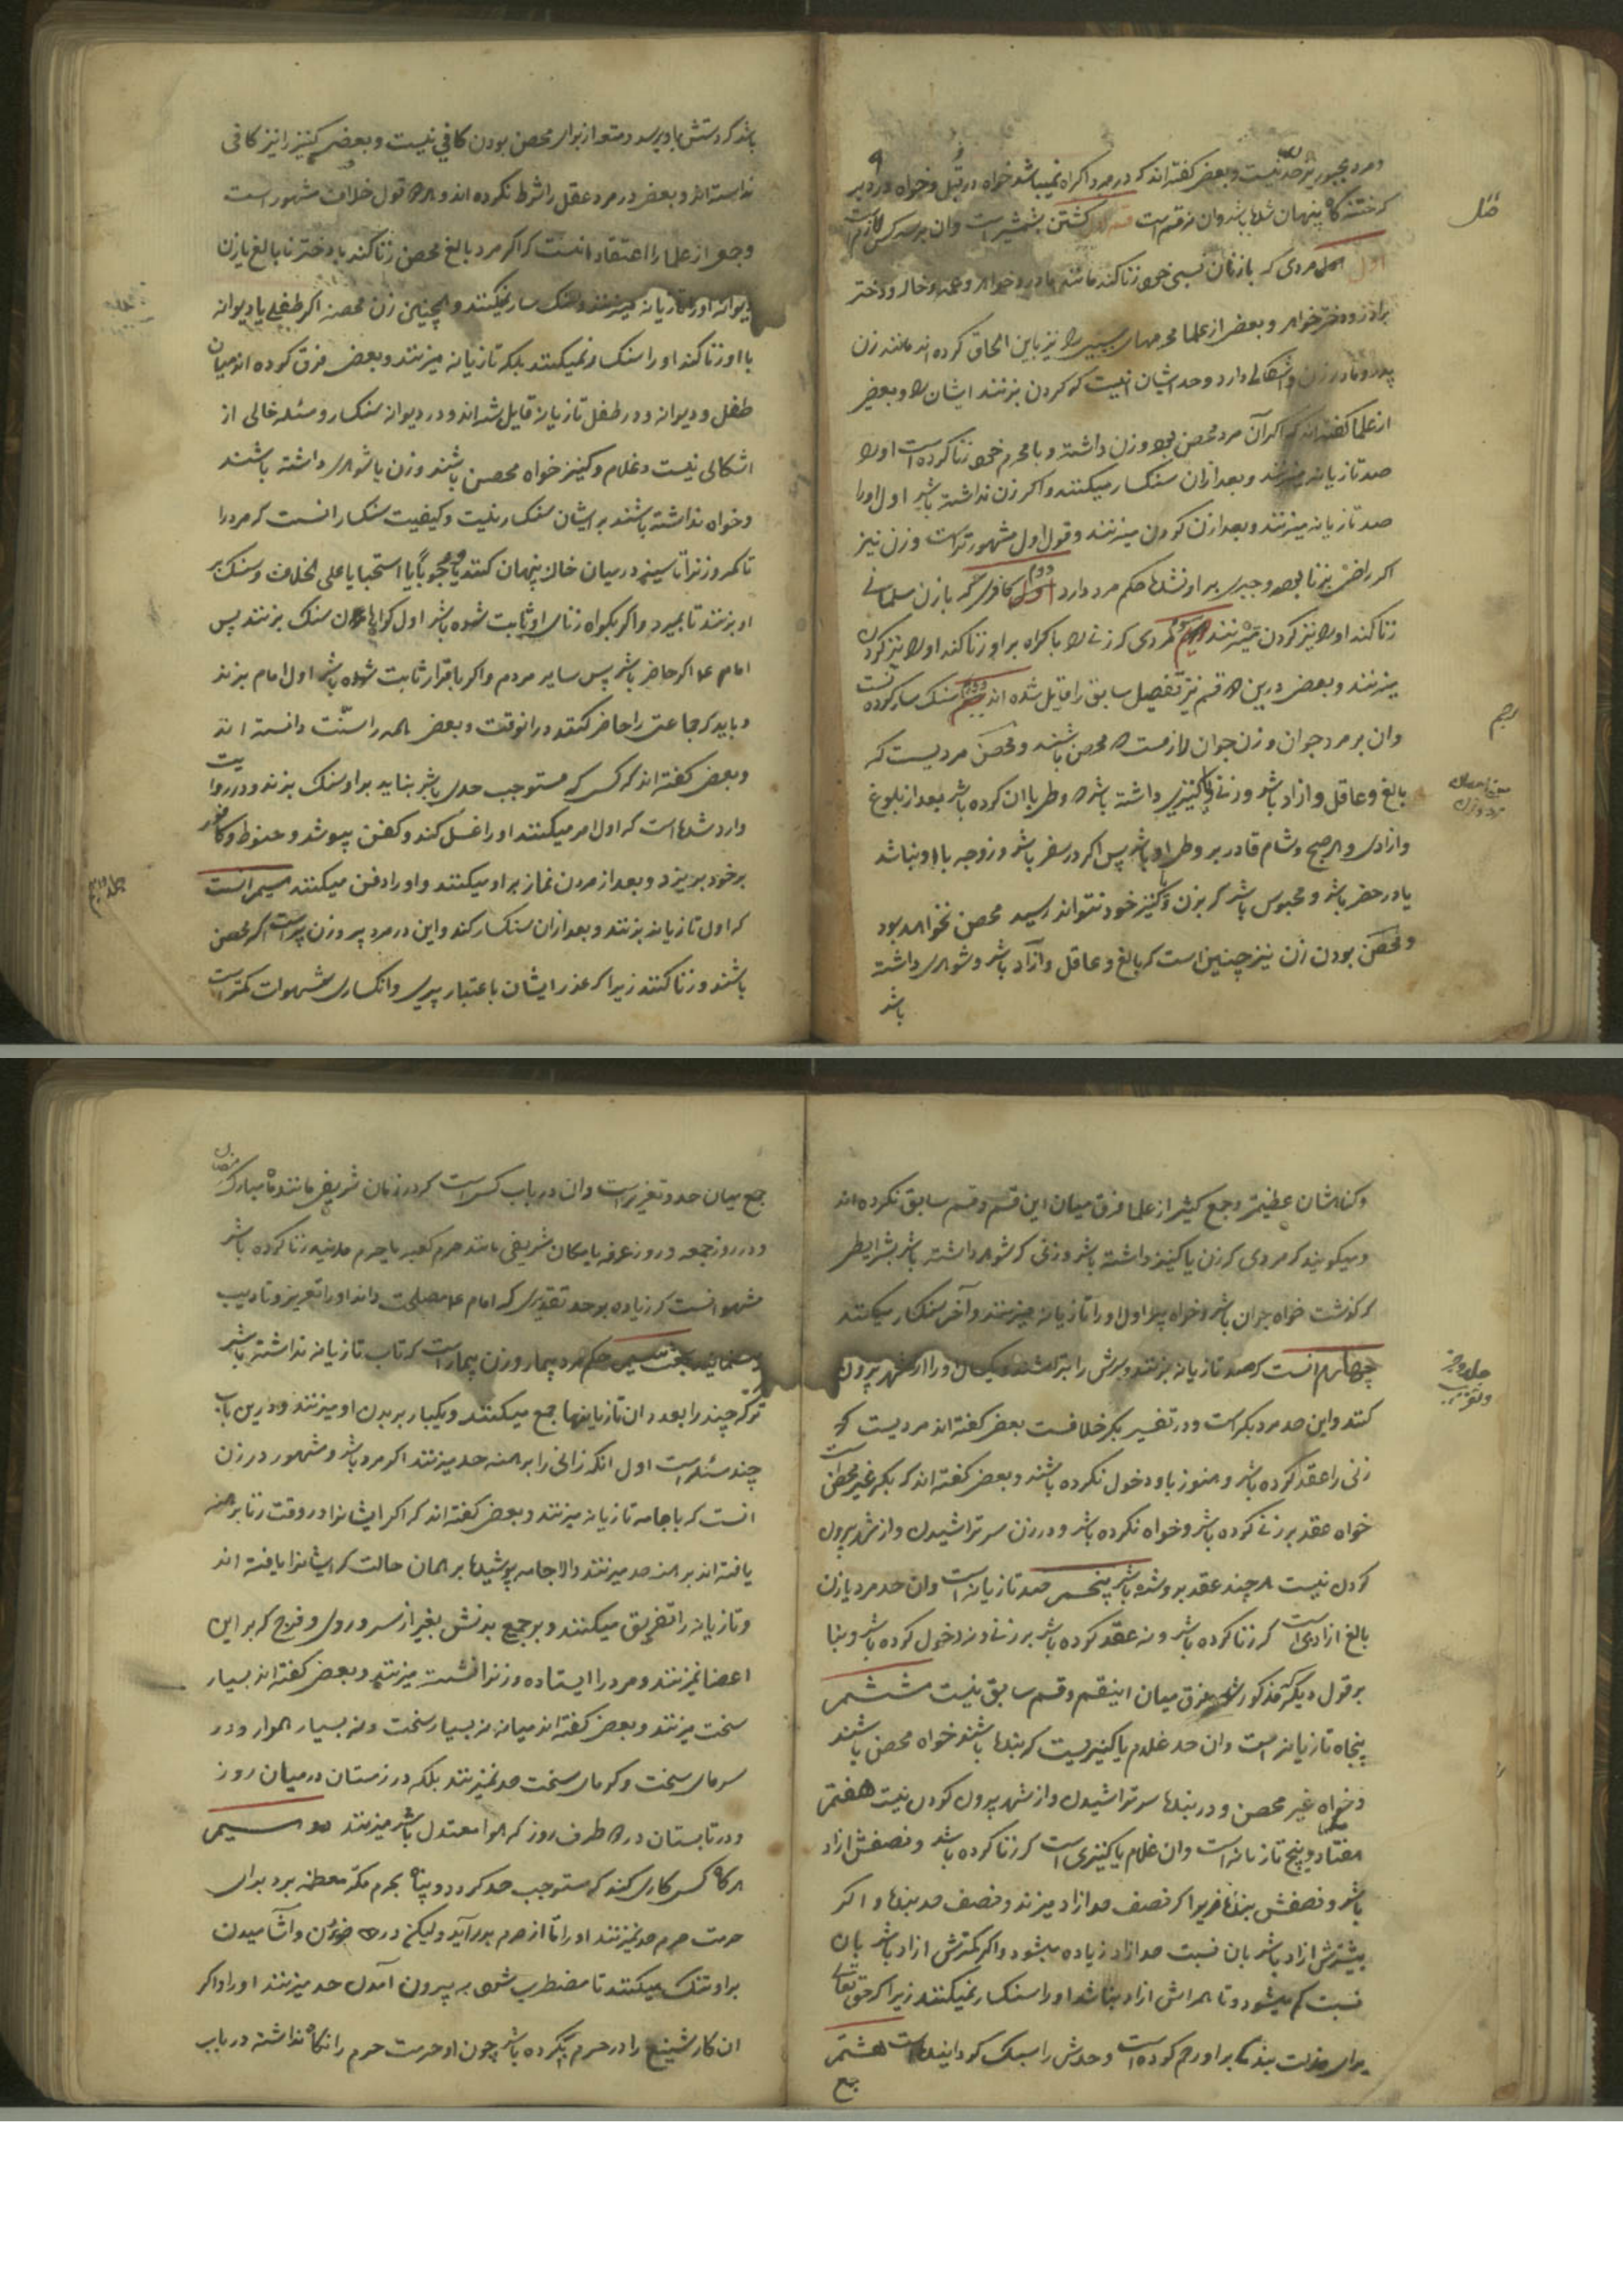 و مرد مجبور بر حد نیست و بعضی کفته اند که در مرد اکراه نمیباشد خواه در قبل و خواه در دبر
که ختنه کاه پنهان شده باشد و ان نه قسم است قسم اول کشتن بشمشیر است و ان بر سه کس لازم است
قتل
اول مردی که با زنان نسبی خود زنا کند مانند مادر و خواهر و عمه و خاله و دختر
برادر و دختر خواهر و بعضی از علما محرمهای سببی را نیز باین الحاق کرده اند مانند زن
پدر و مادر زن و اشکالی دارد و حد ایشان انیست که کردن بزنند ایشان را و بعضی
از علما کفته اند که اکر آن مرد محصن بود و زن داشته و با محرم خود زنا کرده است اورا
صد تازیانه میزنند و بعد ازان سنکسار میکنند و اکر زن نداشته باشد اول اورا
صد تازیانه میزنند و بعد ازن کردن میزنند و قول اول مشهور تر است و زن نیز
اکر راضی بزنا بود و جبری بر او نشده حکم مرد دارد دوم کافری که با زن مسلمانی
زنا کند اورا نیز کردن میزنند سوم مردی که زنی را باکراه بر او زنا کند اورا نیز کردن
میزنند و بعضی درین دو قسم نیز تفصیل سابق را قایل شده اند دوم سنک سار کردنست
رجم
وان بر مرد جوان و زن جوان لازمست که محصن باشند و محصن مردیست که
بالغ و عاقل و ازاد باشد و زنی یا کنیزی داشته باشد که وطی با ان کرده باشد بعد از بلوغ
و ازادی و هر صبح و شام قادر بر وطی او باشد پس اکر در سفر باشد و زوجه با او نباشد
یا در حضر باشد و محبوس باشد که بزن و کنیز خود نتواند رسید محصن نخواهد بود
و محصن بودن زن نیز چنین است که بالغ و عاقل و آزاد باشد و شوهری داشته
باشد
باشد که دستش باو برسد و متعه از برای محصن بودن کافی نیست و بعضی کنیز را نیز کافی
ندانسته اند و بعضی در مرد عقل را شرط نکرده اند و هر دو قول خلاف مشهور است
و جمعی از علما را اعتقاد انست که اکر مرد بالغ محصن زنا کند با دختر نابالغ یا زن
دیوانه اورا تازیانه میزنند و سنک سار نمیکنند و همچنین زن محصنه اکر طفلی یا دیوانه
با او زنا کند اورا سنکسار نمیکنند بلکه تازیانه میزنند و بعضی فرق کرده اند میان
طفل و دیوانه و در طفل تازیانه قایل شده اند و در دیوانه سنکسار و مسئله خالی از
اشکالی نیست و غلام و کنیز خواه محصن باشند و زن یا شوهری داشته باشند
و خواه نداشته باشند بر ایشان سنکسار نیست و کیفیت سنکسار انست که مرد را
تا کمر و زنرا تا سینه در میان خاک پنهان کنند یا وجوبا یا استحبابا علی الخلاف و سنک بر
او بزنند تا بمیرد و اکر بکواه زنای او ثابت شده باشد اول کواهان سنک بزنند پس
امام ع اکر حاضر باشد پس سایر مردم و اکر باقرار ثابت شده باشد اول امام بزند
و باید که جماعتی را حاضر کنند در انوقت و بعضی همه را سنت دانسته اند
و بعضی کفته اند که کسی که مستوجب حدی باشد نباید بر او سنک بزند و در روایت
وارد شده است که اول امر میکنند اورا غسل کند و کفن بپوشد و حنوط و کافور
بر خود بریزد و بعد از مردن نماز بر او میکنند و اورا دفن میکنند سیم انست
که اول تازیانه بزنند و بعد ازان سنکسار کنند و این در مرد پیر و زن پیر است اکر محصن
باشند و زنا کنند زیرا که عذر ایشان باعتبار پیری و انکساری شهوات کمتر است
و کناه ایشان عظیمتر و جمع کثیر از علما فرق میان این قسم و قسم سابق نکرده اند
و میکویند که مردی که زن یا کنیز داشته باشد و زنی که شوهر داشته باشد بشرایطی
که کذشت خواه جوان باشد و خواه پیر اول اورا تازیانه میزنند و آخر سنکسار میکنند
چهارم انست که صد تازیانه بزنند و سرش را بتراشند و یکسال اورا از شهر بیرون
کنند و این حد مرد بکر است و در تفسیر بکر خلافست بعضی کفته اند مردیست که
زنی را عقد کرده باشد و هنوز باو دخول نکرده باشند و بعضی کفته اند که بکر غیر محصن است
خواه عقد بر زنی کرده باشد و خواه نکرده باشد و در زن سر تراشیدن و از شهر بیرون
کردن نیست هر چند عقد بر او شده باشد پنجم صد تازیانه است وان حد مرد یا زن
بالغ ازادی است که زنا کرده باشد و نه عقد کرده باشد بر زنی و نه دخول کرده باشد و بنا
بر قول دیکر که مذکور شد فرق میان اینقسم و قسم سابق نیست ششم
پنجاه تازیانه است وان حد غلام یا کنیزیست که بنده باشند خواه محصن باشند
و خواه غیر محصن و در بنده سر تراشیدن و از شهر بیرون کردن نیست هفتم
هفتاد و پنج تازیانه است وان غلام یا کنیزی است که زنا کرده باشد و نصفش ازاد
باشد و نصفش بنده زیرا که نصف حد ازاد میزند و نصف حد بنده و اکر
بیشترش ازاد باشد بان نسبت حد ازاد زیاده میشود و اکر کمترش ازاد باشد بان
نسبت کم میشود و تا همه اش ازاد نباشد اورا سنکسار نمیکنند زیرا که حق تعالی
برای مذلت بنده کی بر او رحم کرده است و حدش را سبک کردانیده است هشتم
جمع
جمع میان حد و تعزیر است وان در باب کسی است که در زمان شریفی مانند ماه مبارک رمضان
و در روز جمعه و روز عرفه یا مکان شریفی مانند حرم کعبه یا حرم مدینه زنا کرده باشد
مشهور انست که زیاده بر حد تقدیری که امام ع مصلحت داند اورا تعزیر و تادیب
حکم مرد بیمار و زن بیمار است که تاب تازیانه نداشته باشد
ترکه چند را بعدد ان تازیانها جمع میکنند و یکبار بر بدن او میزنند و درین باب
چند مسئله است اول انکه زانی را برهنه حد میزنند اکر مرد باشد و مشهور در زن
انست که با جامه تازیانه میزنند و بعضی کفته اند که اکر ایشانرا در وقت زنا برهنه
یافته اند برهنه حد میزنند والا جامه پوشیده بر همان حالت که ایشانرا یافته اند
و تازیانه را تفریق میکنند و بر جمیع بدنش بغیر از سر و روی و فرج که بر این
اعضا نمیزنند و مرد را ایستاده و زنرا نشسته میزنند و بعضی کفته اند بسیار
سخت میزنند و بعضی کفته اند میانه نه بسیار سخت و نه بسیار هموار و در
سرمای سخت و کرمای سخت حد نمیزنند بلکه در زمستان در میان روز
و در تابستان در دو طرف روز که هوا معتدل باشد میزنند
هر کاه کسی کاری کند که مستوجب حد کردد و پناه بحرم مکه معظمه برد برای
حرمت حرم حد نمیزنند اورا تا از حرم بدر آید ولیکن در خوردن و آشامیدن
بر او تنک میکنند تا مضطر شود به بیرون آمدن حد میزنند اورا و اکر
ان کار شنیع را در حرم کرده باشد چون او حرمت حرم را نکاه نداشته در باب